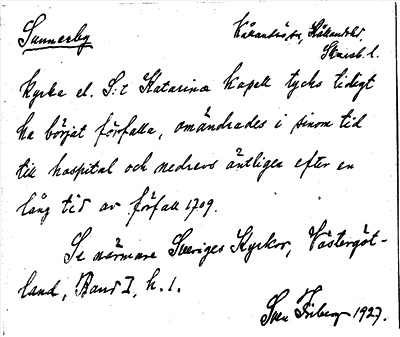 Sunnerby
Kållandsö, Kållands hd,
Skarab. l.
Kyrka el. S:t Katarina kapell tycks tidigt
ha börjat förfalla, omändrades i sinom tid
till hospital och nedrevs äntligen efter en
lång tid av förfall 1709.
Se närmare Sveriges Kyrkor, Västergöt-
land, Band I, h. 1.
Sven Friberg 1927.